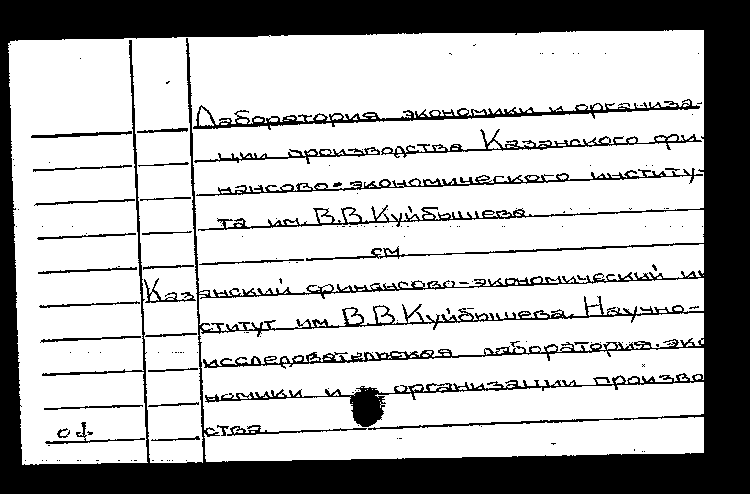 Лаборатория экономики и организа-
ции производства Казанского фи-
нансово-экономического институ-
та им. В.В.Куйбышева.
см.
Казанский финансово-экономический ин
ститут им. В.В.Куйбышева. Научно-
исследовательская лаборатория эко
номики и организации производ
ства.